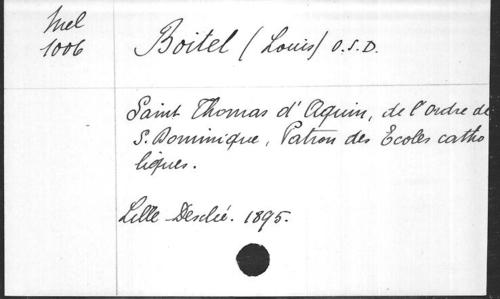 Mel
1006
Boitel (Louis) O.S.D.
Saint Thomas d'Aquin, de l'Ordre de
S. Dominique, Patron des Ecoles catho
liques.
Lille Desclée. 1895.